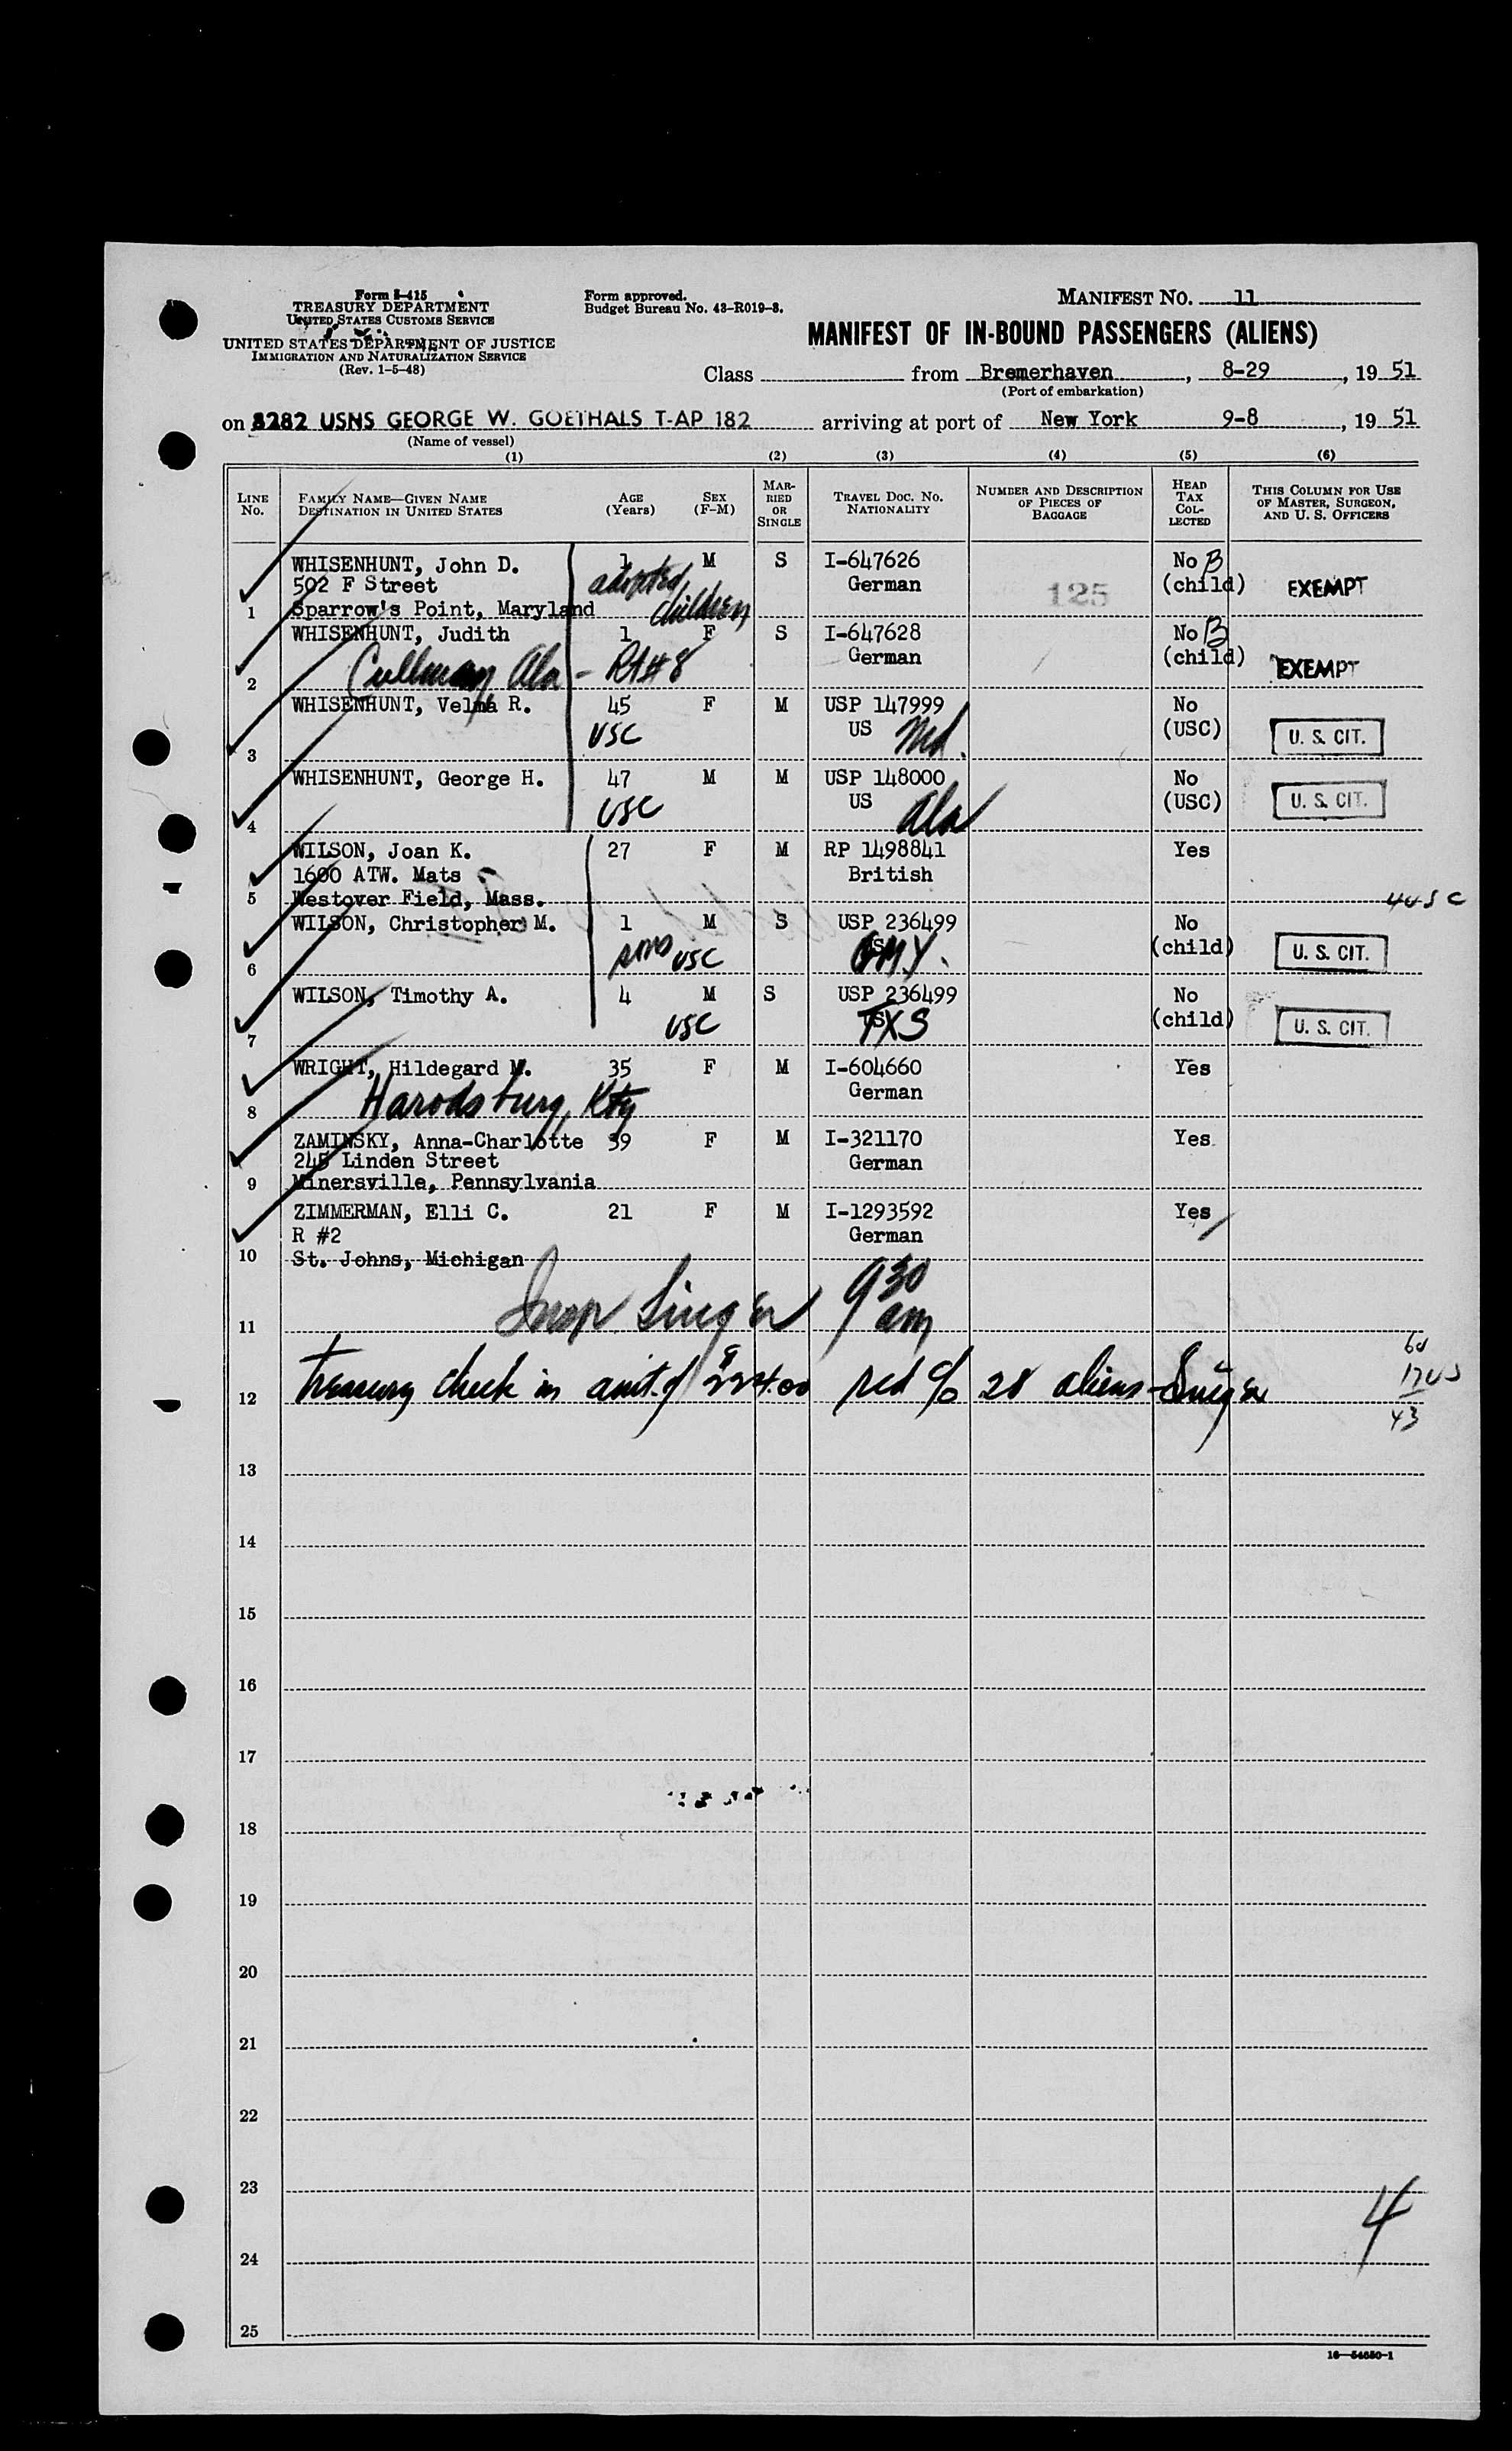 Form I-415
TREASURY DEPARTMENT
UNITED STATES CUSTOMS SERVICE
UNITED STATES DEPARTMENT OF JUSTICE
IMMIGRATION AND NATURALIZATION SERVICE
(Rev. 1-5-48)
Form approved.
Budget Bureau No. 43-R019-3.
MANIFEST NO. 11
MANIFEST OF IN-BOUND PASSENGERS (ALIENS)
Class from Bremerhaven, 8-29, 1951
(Port of embarkation)
on 8282 USNS GEORGE W. GOETHALS T-AP 182 arriving at port of New York 9-8, 1951
(Name of vessel)
(1) (2) (3) (4) (5) (6)
LINE No. FAMILY NAME—GIVEN NAME DESTINATION IN UNITED STATES AGE (Years) SEX (F-M) MARRIED OR SINGLE TRAVEL DOC. NO. NATIONALITY NUMBER AND DESCRIPTION OF PIECES OF BAGGAGE HEAD TAX COLLECTED THIS COLUMN FOR USE OF MASTER, SURGEON, AND U. S. OFFICERS
WHISENHUNT, John D. 1 M S I-647626 No B
502 F Street adopted German 125 (child) EXEMPT
1 Sparrow's Point, Maryland children
WHISENHUNT, Judith 1 F S I-647628 No B
Cullman, Ala - Rt #8 German (child) EXEMPT
2
WHISENHUNT, Velma R. 45 F M USP 147999 No
USC US Md. (USC) U. S. CIT.
3
WHISENHUNT, George H. 47 M M USP 148000 No
USC US Ala (USC) U. S. CIT.
4
WILSON, Joan K. 27 F M RP 1498841 Yes
1600 ATW. Mats British
5 Westover Field, Mass. 4USC
WILSON, Christopher M. 1 M S USP 236499 No
USC GMY. (child) U. S. CIT.
6
WILSON, Timothy A. 4 M S USP 236499 No
USC TXS (child) U. S. CIT.
7
WRIGHT, Hildegard M. 35 F M I-604660 Yes
German
8 Harodsburg, Kty
ZAMINSKY, Anna-Charlotte 39 F M I-321170 Yes
245 Linden Street German
9 Minersville, Pennsylvania
ZIMMERMAN, Elli C. 21 F M I-1293592 Yes
R #2 German
10 St. Johns, Michigan
11 Insp. Singer 9 30 am
12 Treasury check in amt. of $224.00 rcd c/o 28 aliens - Singer
43
13
14
15
16
17
18
19
20
21
22
23
4
24
25
16—54650-1